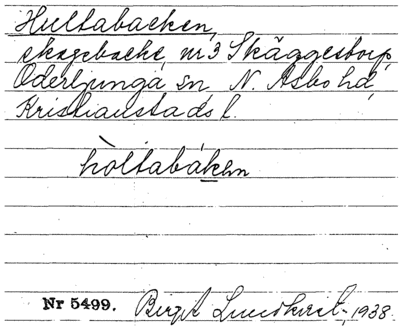 Hultabacken,
skogsbacke, nr 3 Skäggestorp,
Oderljunga sn, N. Åsbo hd,
Kristianstads l.
hòltabáken
Nr 5499. Birgit Lundkvist, 1938.